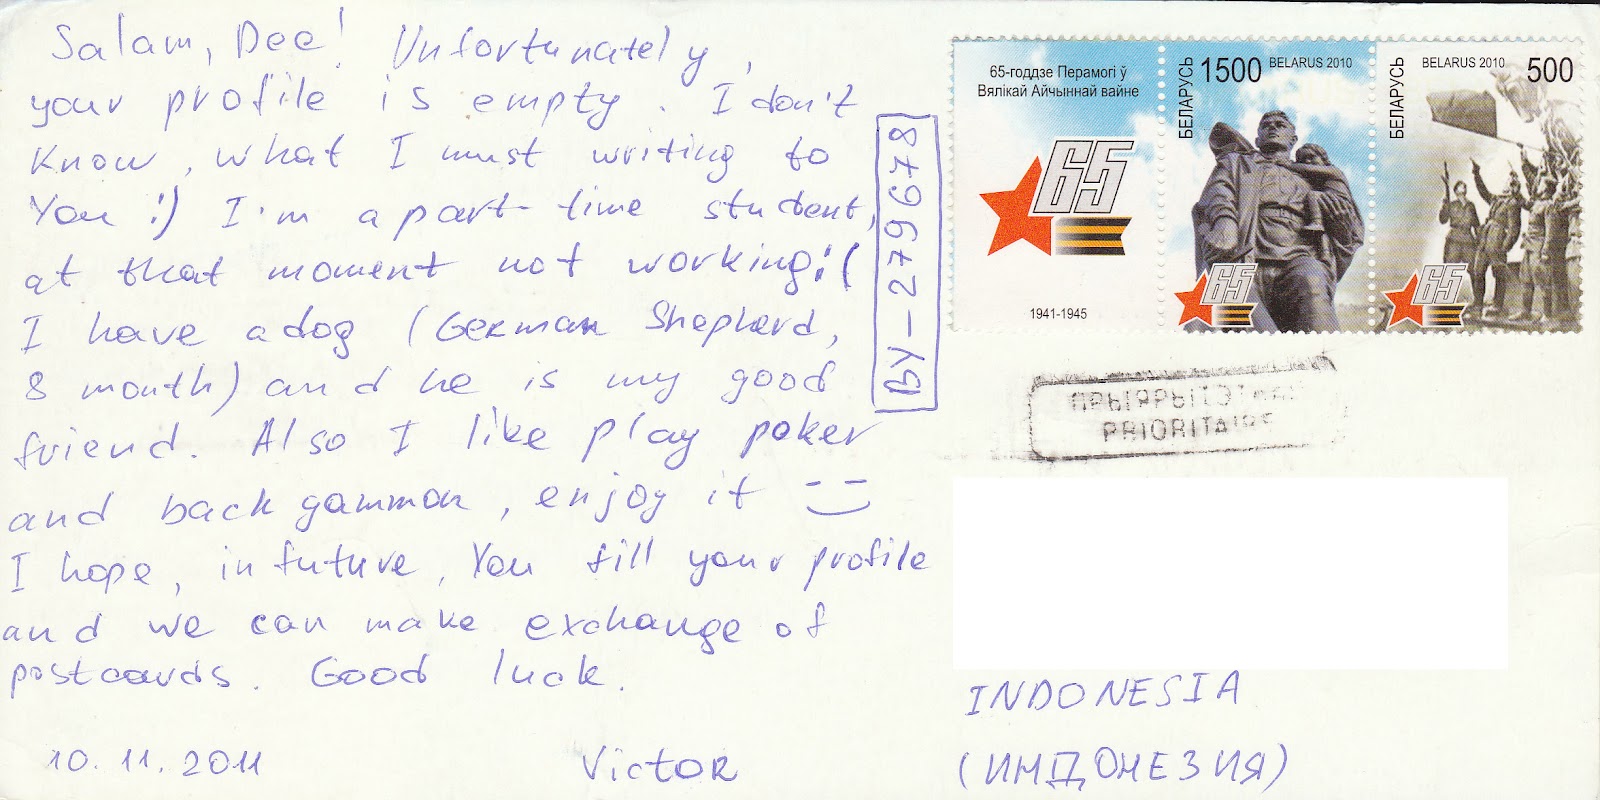 Salam, Dee! Unfortunately,
your profile is empty. I don't
know, what I must writing to
You :) I'm a part-time student,
at that moment not working :(
I have a dog (German Sheperd,
8 month) and he is my good
friend. Also I like play poker
and backgammon, enjoy it
I hope, in future, You fill your profile
and we can make exchange of
postcards. Good luck.
10.11.2011 Victor
BY-279678
65-годдзе Перамогі ў
Вялікай Айчыннай вайне
65
1941-1945
БЕЛАРУСЬ
1500 BELARUS 2010
65
БЕЛАРУСЬ
BELARUS 2010 500
65
ПРЫЯРЫТЭТНАЕ
PRIORITAIRE
INDONESIA
(ИНДОНЕЗИЯ)